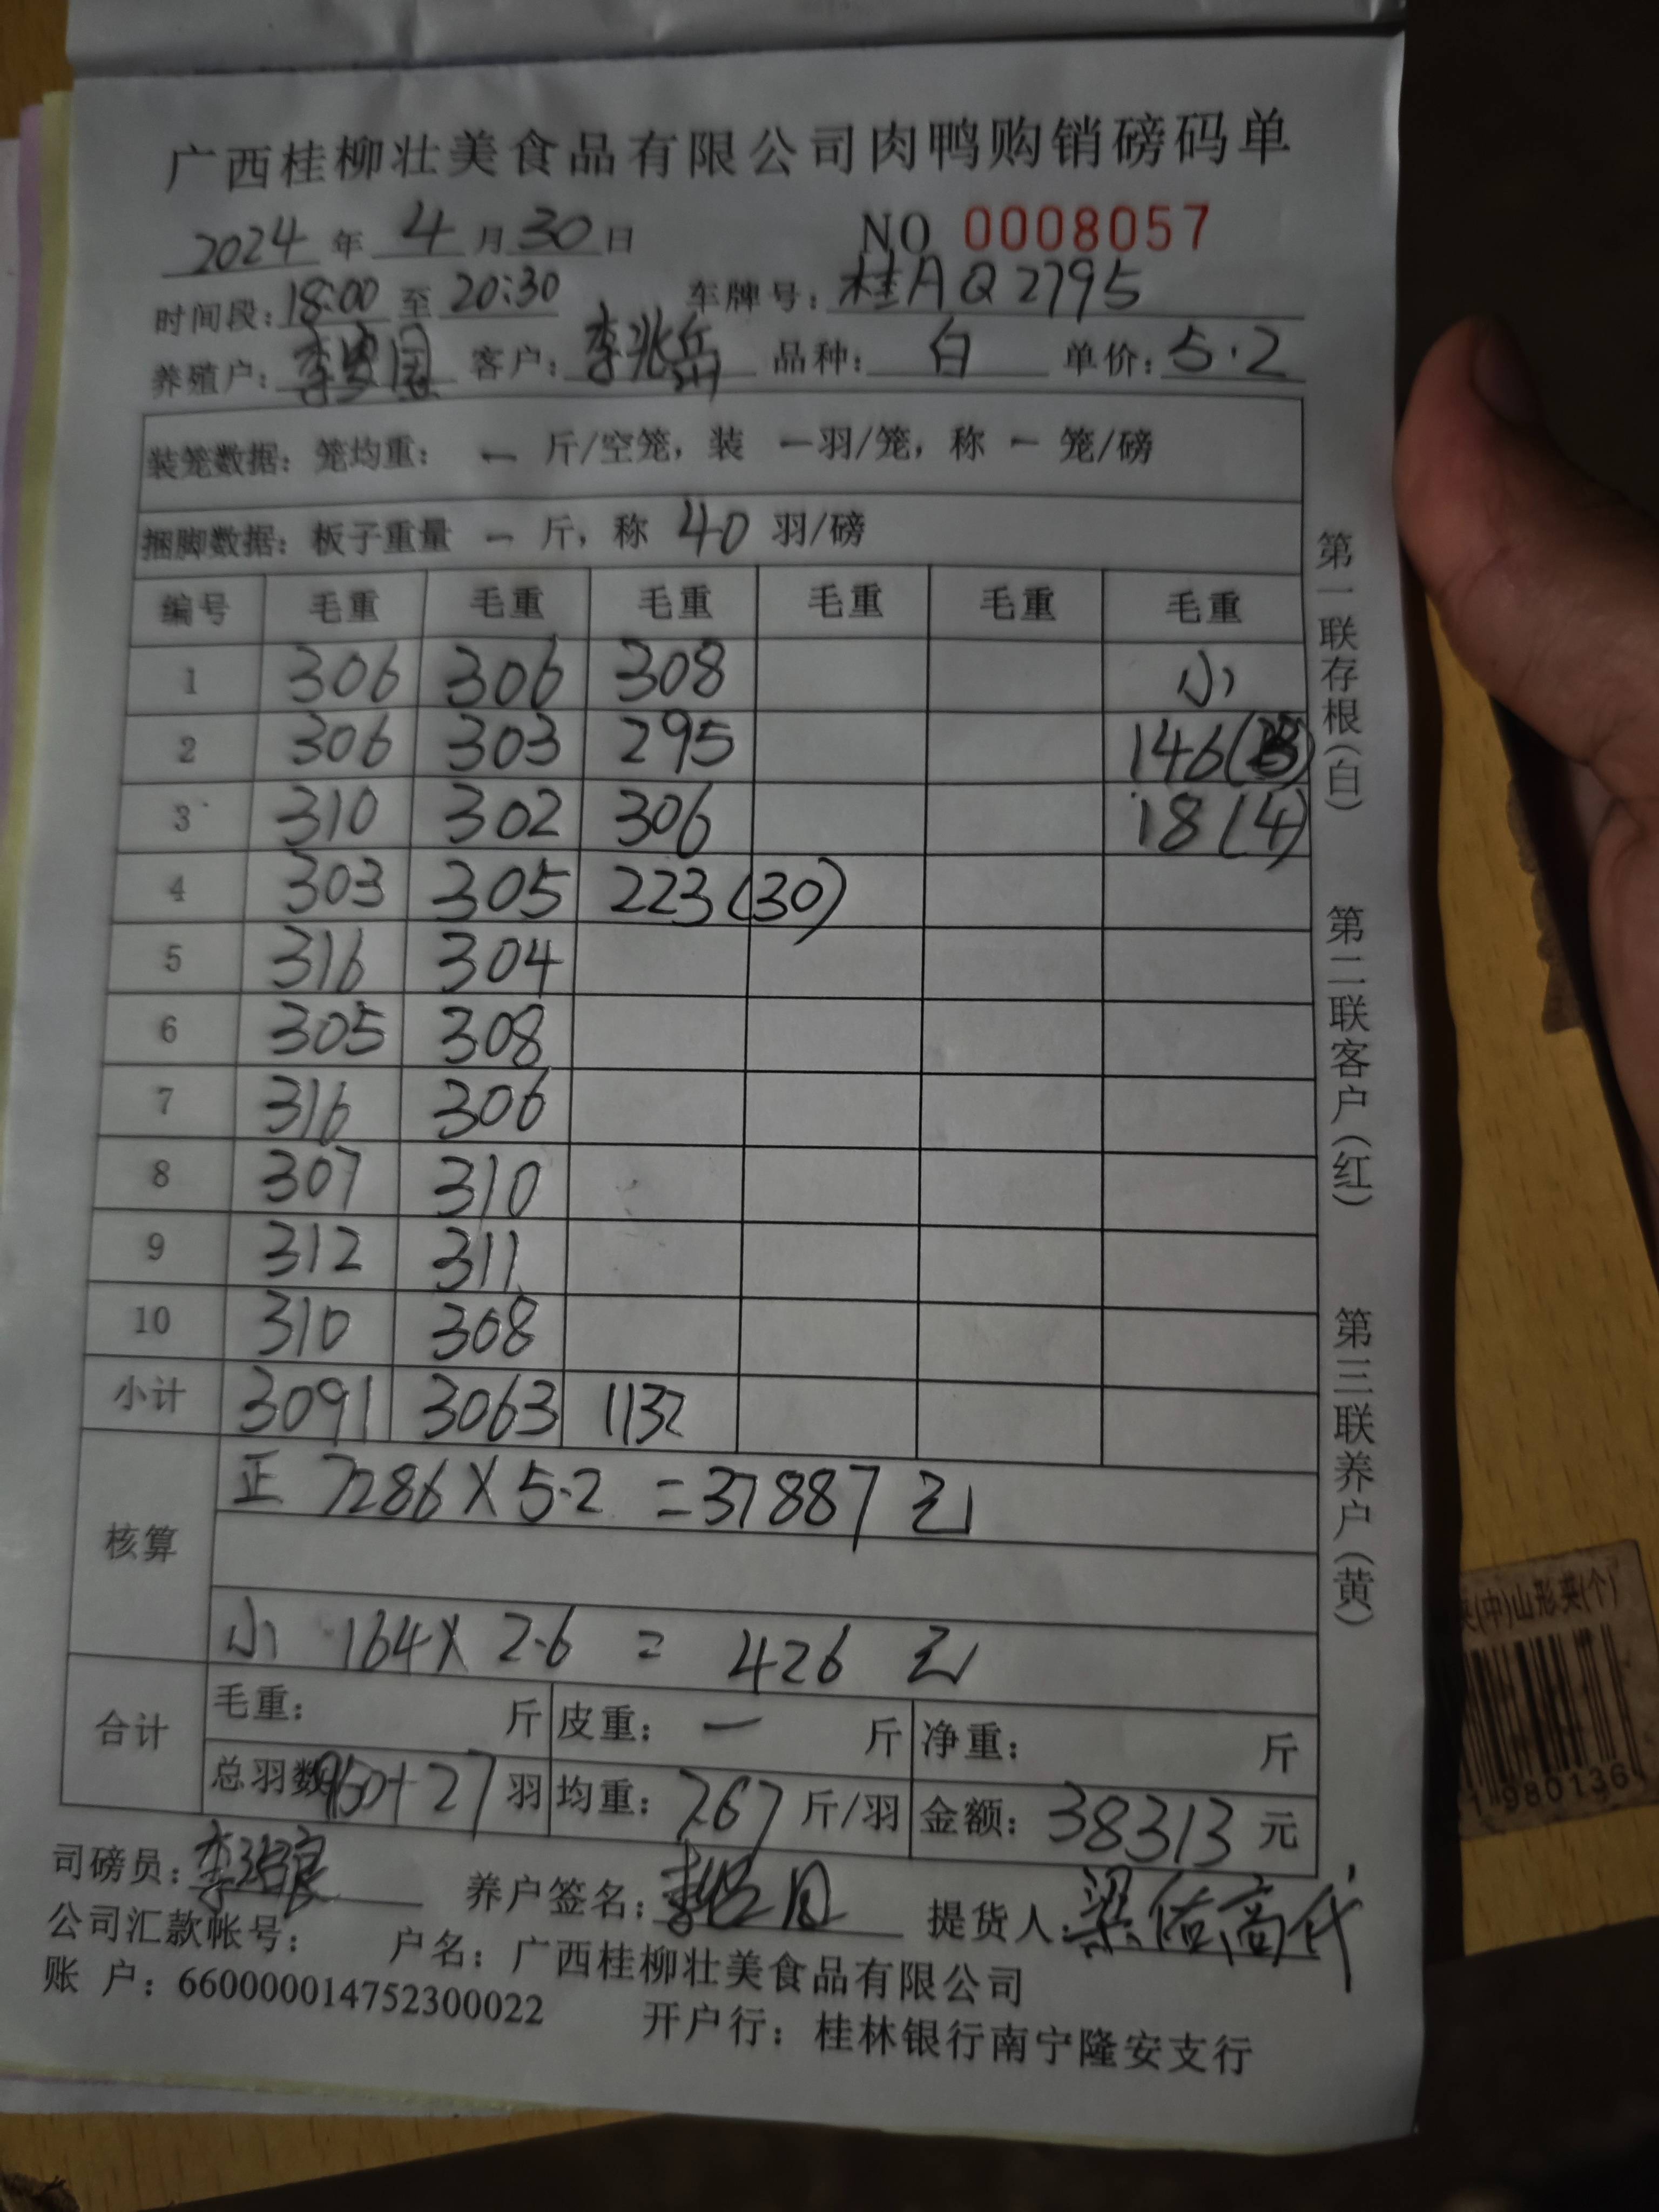 广西桂柳壮美食品有限公司肉鸭购销磅码单
2024年 4月30日 NO 0008057
时间段:18:00 至 20:30 车牌号:桂AQ2795
养殖户: 李 客户:李兆 品种: 白 单价:5.2
装笼数据:笼均重: 一 斤/空笼,装 一羽/笼,称 一 笼/磅
捆脚数据:板子重量 一 斤,称 40 羽/磅
编号 毛重 毛重 毛重 毛重 毛重 毛重
1 306 306 308 小
2 306 303 295 146(
3 310 302 306 18(4)
4 303 305 223(30)
5 316 304
6 305 308
7 316 306
8 307 310
9 312 311
10 310 308
小计 3091 3063 1132
核算
正 7286×5.2 =37887 元
小 164×2.6 = 426 元
合计
毛重: 斤 皮重: 一 斤 净重: 斤
总羽数950+27 羽 均重:767 斤/羽 金额:38313 元
司磅员:李 养户签名:李 提货人:梁佑高代
公司汇款帐号: 户名:广西桂柳壮美食品有限公司
账 户:660000014752300022 开户行:桂林银行南宁隆安支行
第一联存根(白)
第二联客户(红)
第三联养户(黄)
(中)山形夹(个)
980136